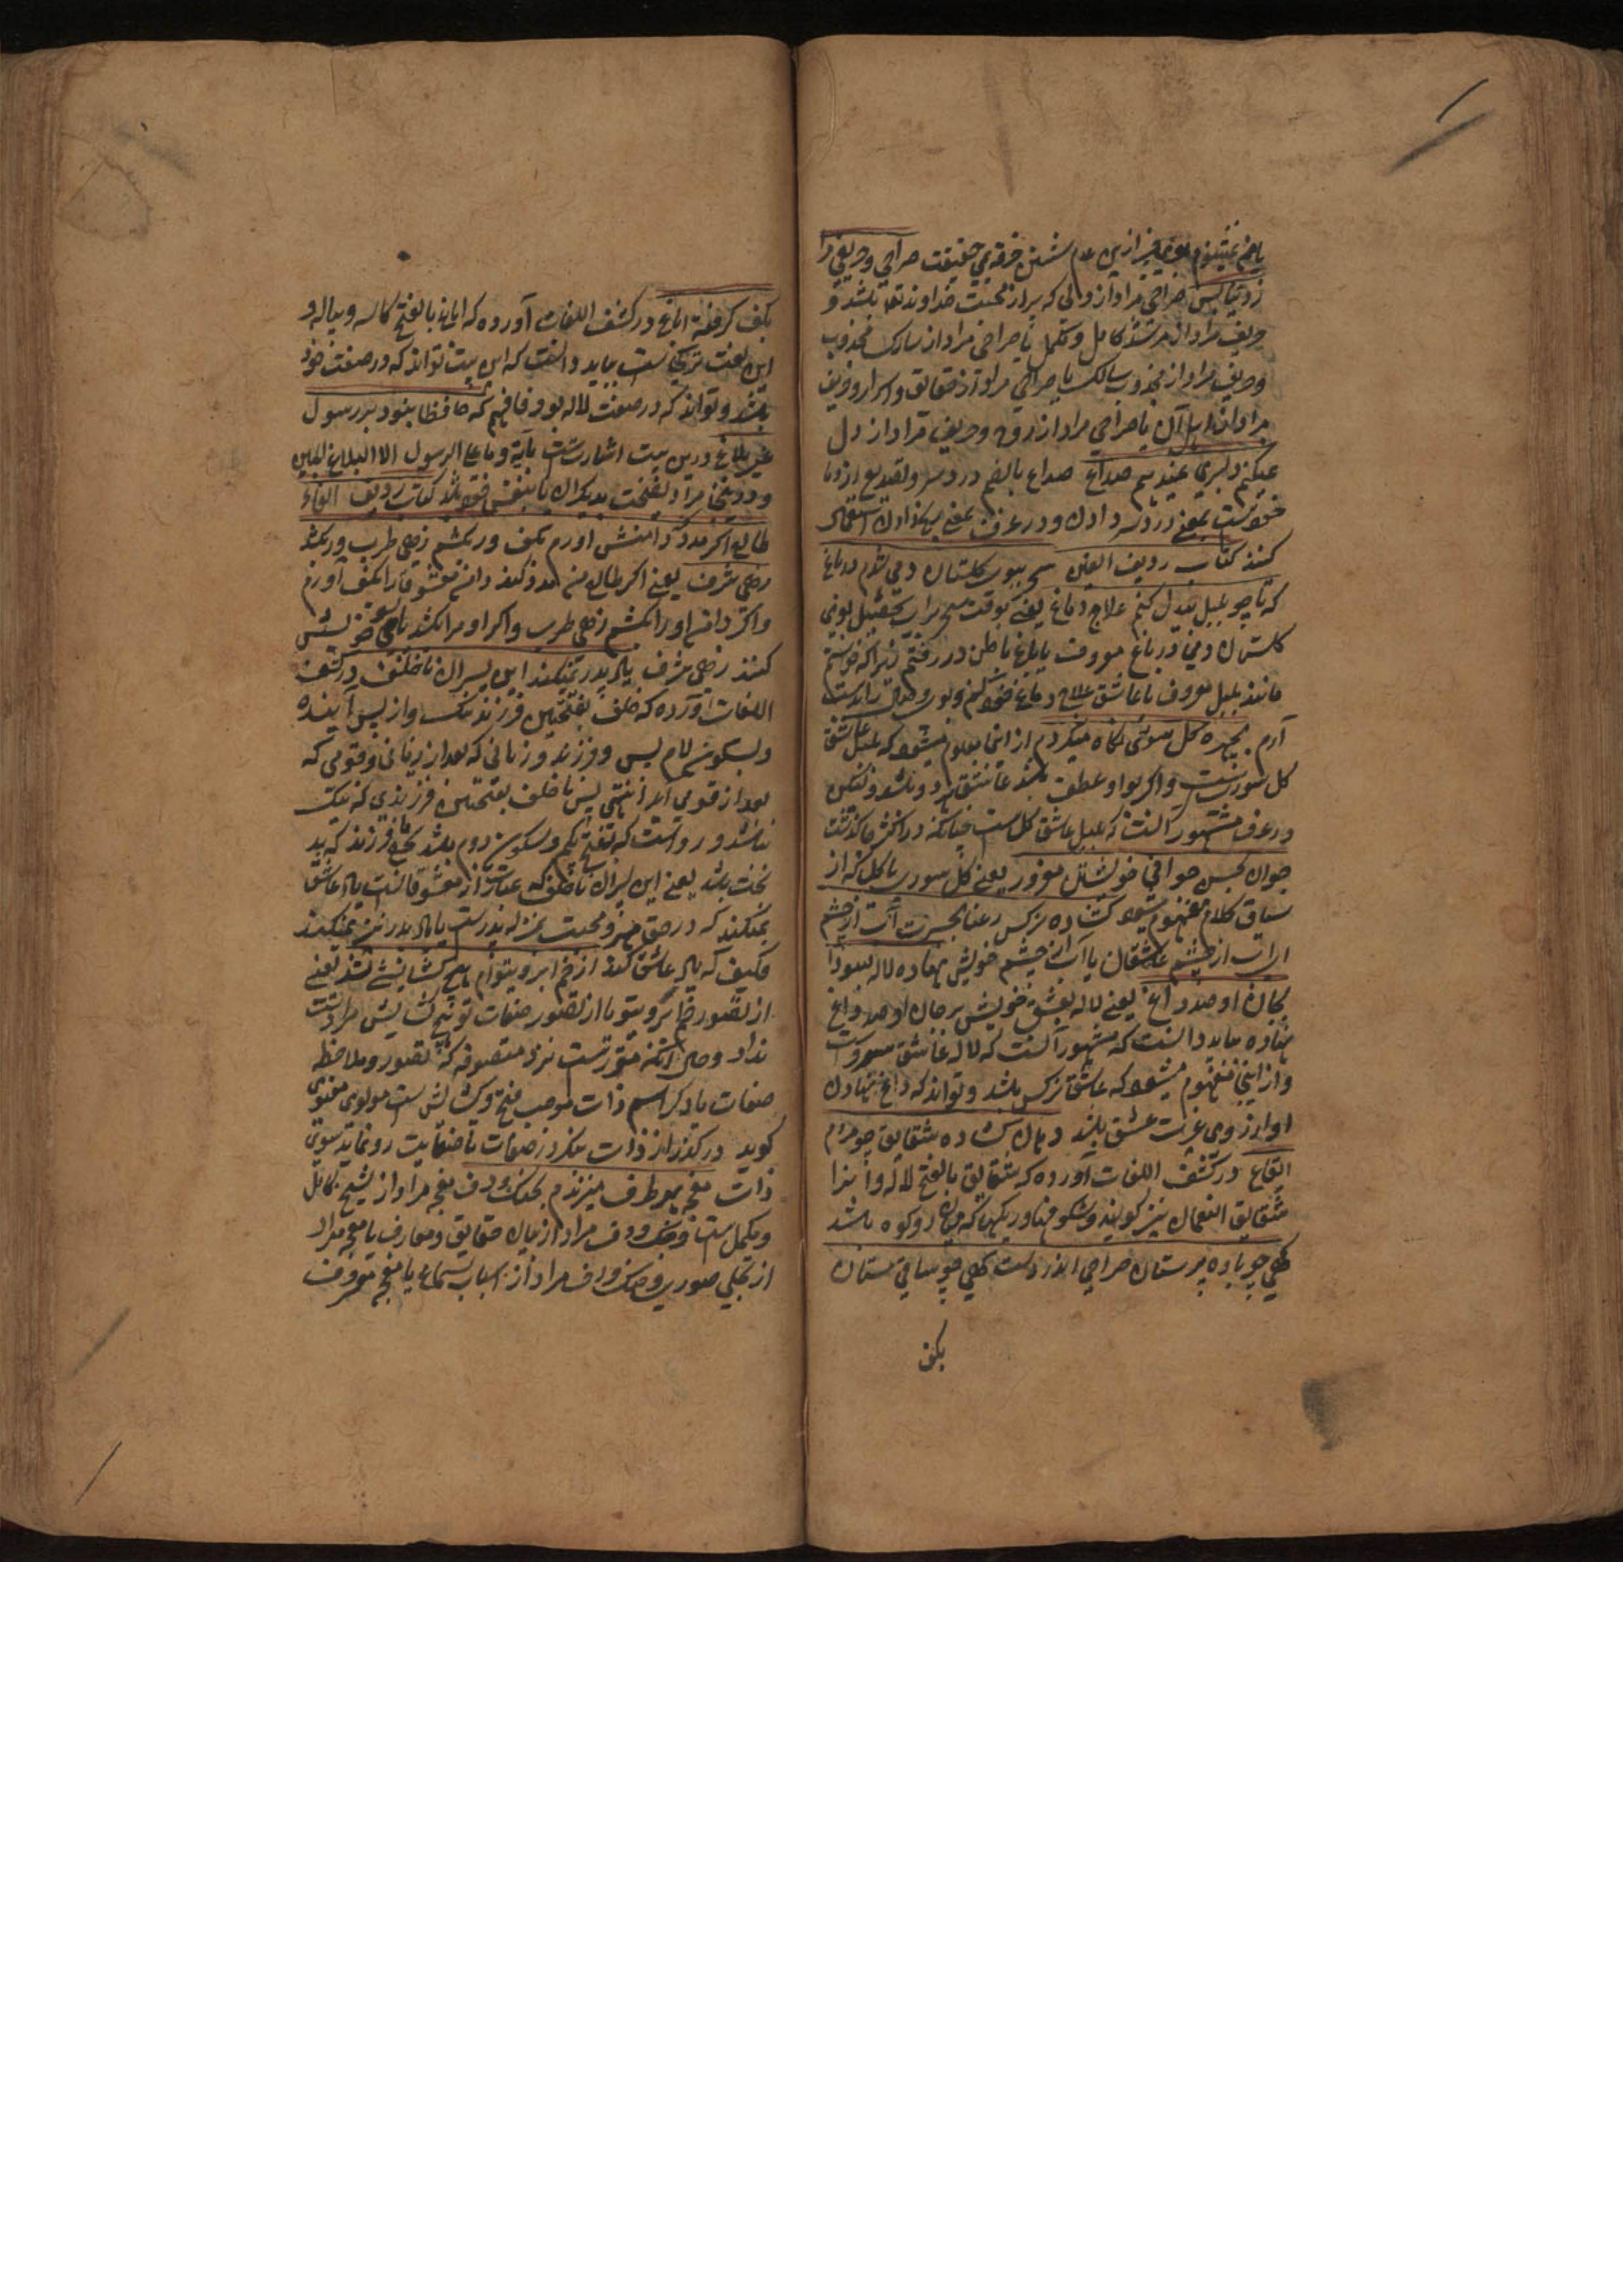 یافغ غیر ازین عدم شستن خرقه بی حقیقت صراحی وحریفی را
زدنیا بس صراحی مراد از دلی که پر از محبت خداوند تعالی باشد و
حریف مراد از مرشد کامل ومکمل یا صراحی مراد از سالک مجذوب
وحریف مراد از مجذوب سالک یا صراحی مراد از حقایق واسرار وحریف
مراد از اهل آن یا صراحی مراد از روح وحریف مراد از دل
صداع بالضم درد سر وتصدیع از وما
خوذست بمعنی درد سر دادن ودر عرف بمعنی استعمال
کنند کتاب ردیف الغین سحر ببوی گلستان دمی شدم در باغ
که تا چو بلبل بیدل کنم علاج دماغ یعنی بوقت سحر برای تحصیل بوی
گلستان دمی در باغ معروف یا باغ باطن در رفتم زیرا که خواستم
مانند بلبل معروف یا عاشق علاج دماغ خود کنم
آرم بچهره گل سوری نگاه میکردم از اینجا معلوم میشود که بلبل عاشق
گل سوریست واگر بواو عطف باشد عاشق هر دو باشد ولیکن
در عرف مشهور آنست که بلبل عاشق گل است چنانکه در اکثر جا گذشت
چنان بحسن جوانی خویشتن مغرور یعنی گل سوری یا گل که از
سیاق کلام مفهوم میشود گشاده نرگس رعنا بحسرت آب از چشم
ای آب از چشم عاشقان یا آب از چشم خویش نهاده لاله بسودا
بجان او صد داغ یعنی لاله بعشق خویش بر جان او صد داغ
نهاده باید دانست که مشهور آنست که لاله عاشق سرو است
واز اینجا مفهوم میشود که عاشق نرگس باشد وتواند که داغ نهادن
او از روی غیرت عشق باشد دهان گشاده شقایق چو مردم
ایقاع در کشف اللغات آورده که شقایق بالفتح لاله وآنرا
شقایق النعمان نیز گویند وشکوفها در یکجا که میان دو کوه باشد
گهی چو باده پرستان صراحی اندر دست گهی چو ساقی مستان
بکف
بکف گرفته ایاغ در کشف اللغات آورده که ایاغ بالفتح کاسه وپیاله و
این لغت ترکی است بباید دانست که این بیت تواند که در صفت خود
باشد وتواند که در صفت لاله بود فافهم که حافظا نبود بر رسول
غیر بلاغ درین بیت اشارتست بآیة وما علی الرسول الا البلاغ المبین
ودر اینجا مراد نصیحت بدیگران یا بنفس خود باشد کتاب ردیف الفاء
طالع اگر مدد کند دامنش آورم بکف ور بکشم زهی طرب ور بکشد
زهی شرف یعنی اگر طالع من مدد کند دامن معشوق را بکف آورم
واگر دامن او را بکشم زهی طرب واگر او مرا بکشد یا بسوی خویش
کشد زهی شرف یاد پدر نمیکنند این پسران ناخلف در کشف
اللغات آورده که خلف بفتحتین فرزند نیک واز پس آینده
وبسکون لام پس وفرزند وزمانی که بعد از زمانی وقومی که
بعد از قومی آید انتهی پس ناخلف بفتحتین فرزندی که نیک
نباشد ورواست که بفتح یکم وسکون دوم باشد بجای فرزند که بد
بخت باشد یعنی این پسران ناخلف که عبارت از معشوقانست یاد عاشق
نمیکنند که در حق مهر ومحبت بمنزله پدر است یا یاد پدر نیز نمیکنند
فکیف که یاد عاشق کنند از خم ابروی توام هیچ گشایشی نشد یعنی
از تصور خم ابروی تو یا از تصور صفات تو هیچ گشایش مرا دست
نداد وحال آنکه مقررست نزد متصوفه که تصور وملاحظه
صفات یا ذکر اسم ذات موجب فتح وگشایش است مولوی معنوی
گوید در گذر از ذات بنگر در صفات تا صفایت رو نماید سوی
ذات مغبچه هر طرف میزندم بچنگ ودف مغبچه مراد از شیخ کامل
ومکمل است وچنگ ودف مراد از بیان حقایق ومعارف یا مغبچه مراد
از تجلی صوری وچنگ ودف مراد از اسباب سماع یا مغبچه معروف